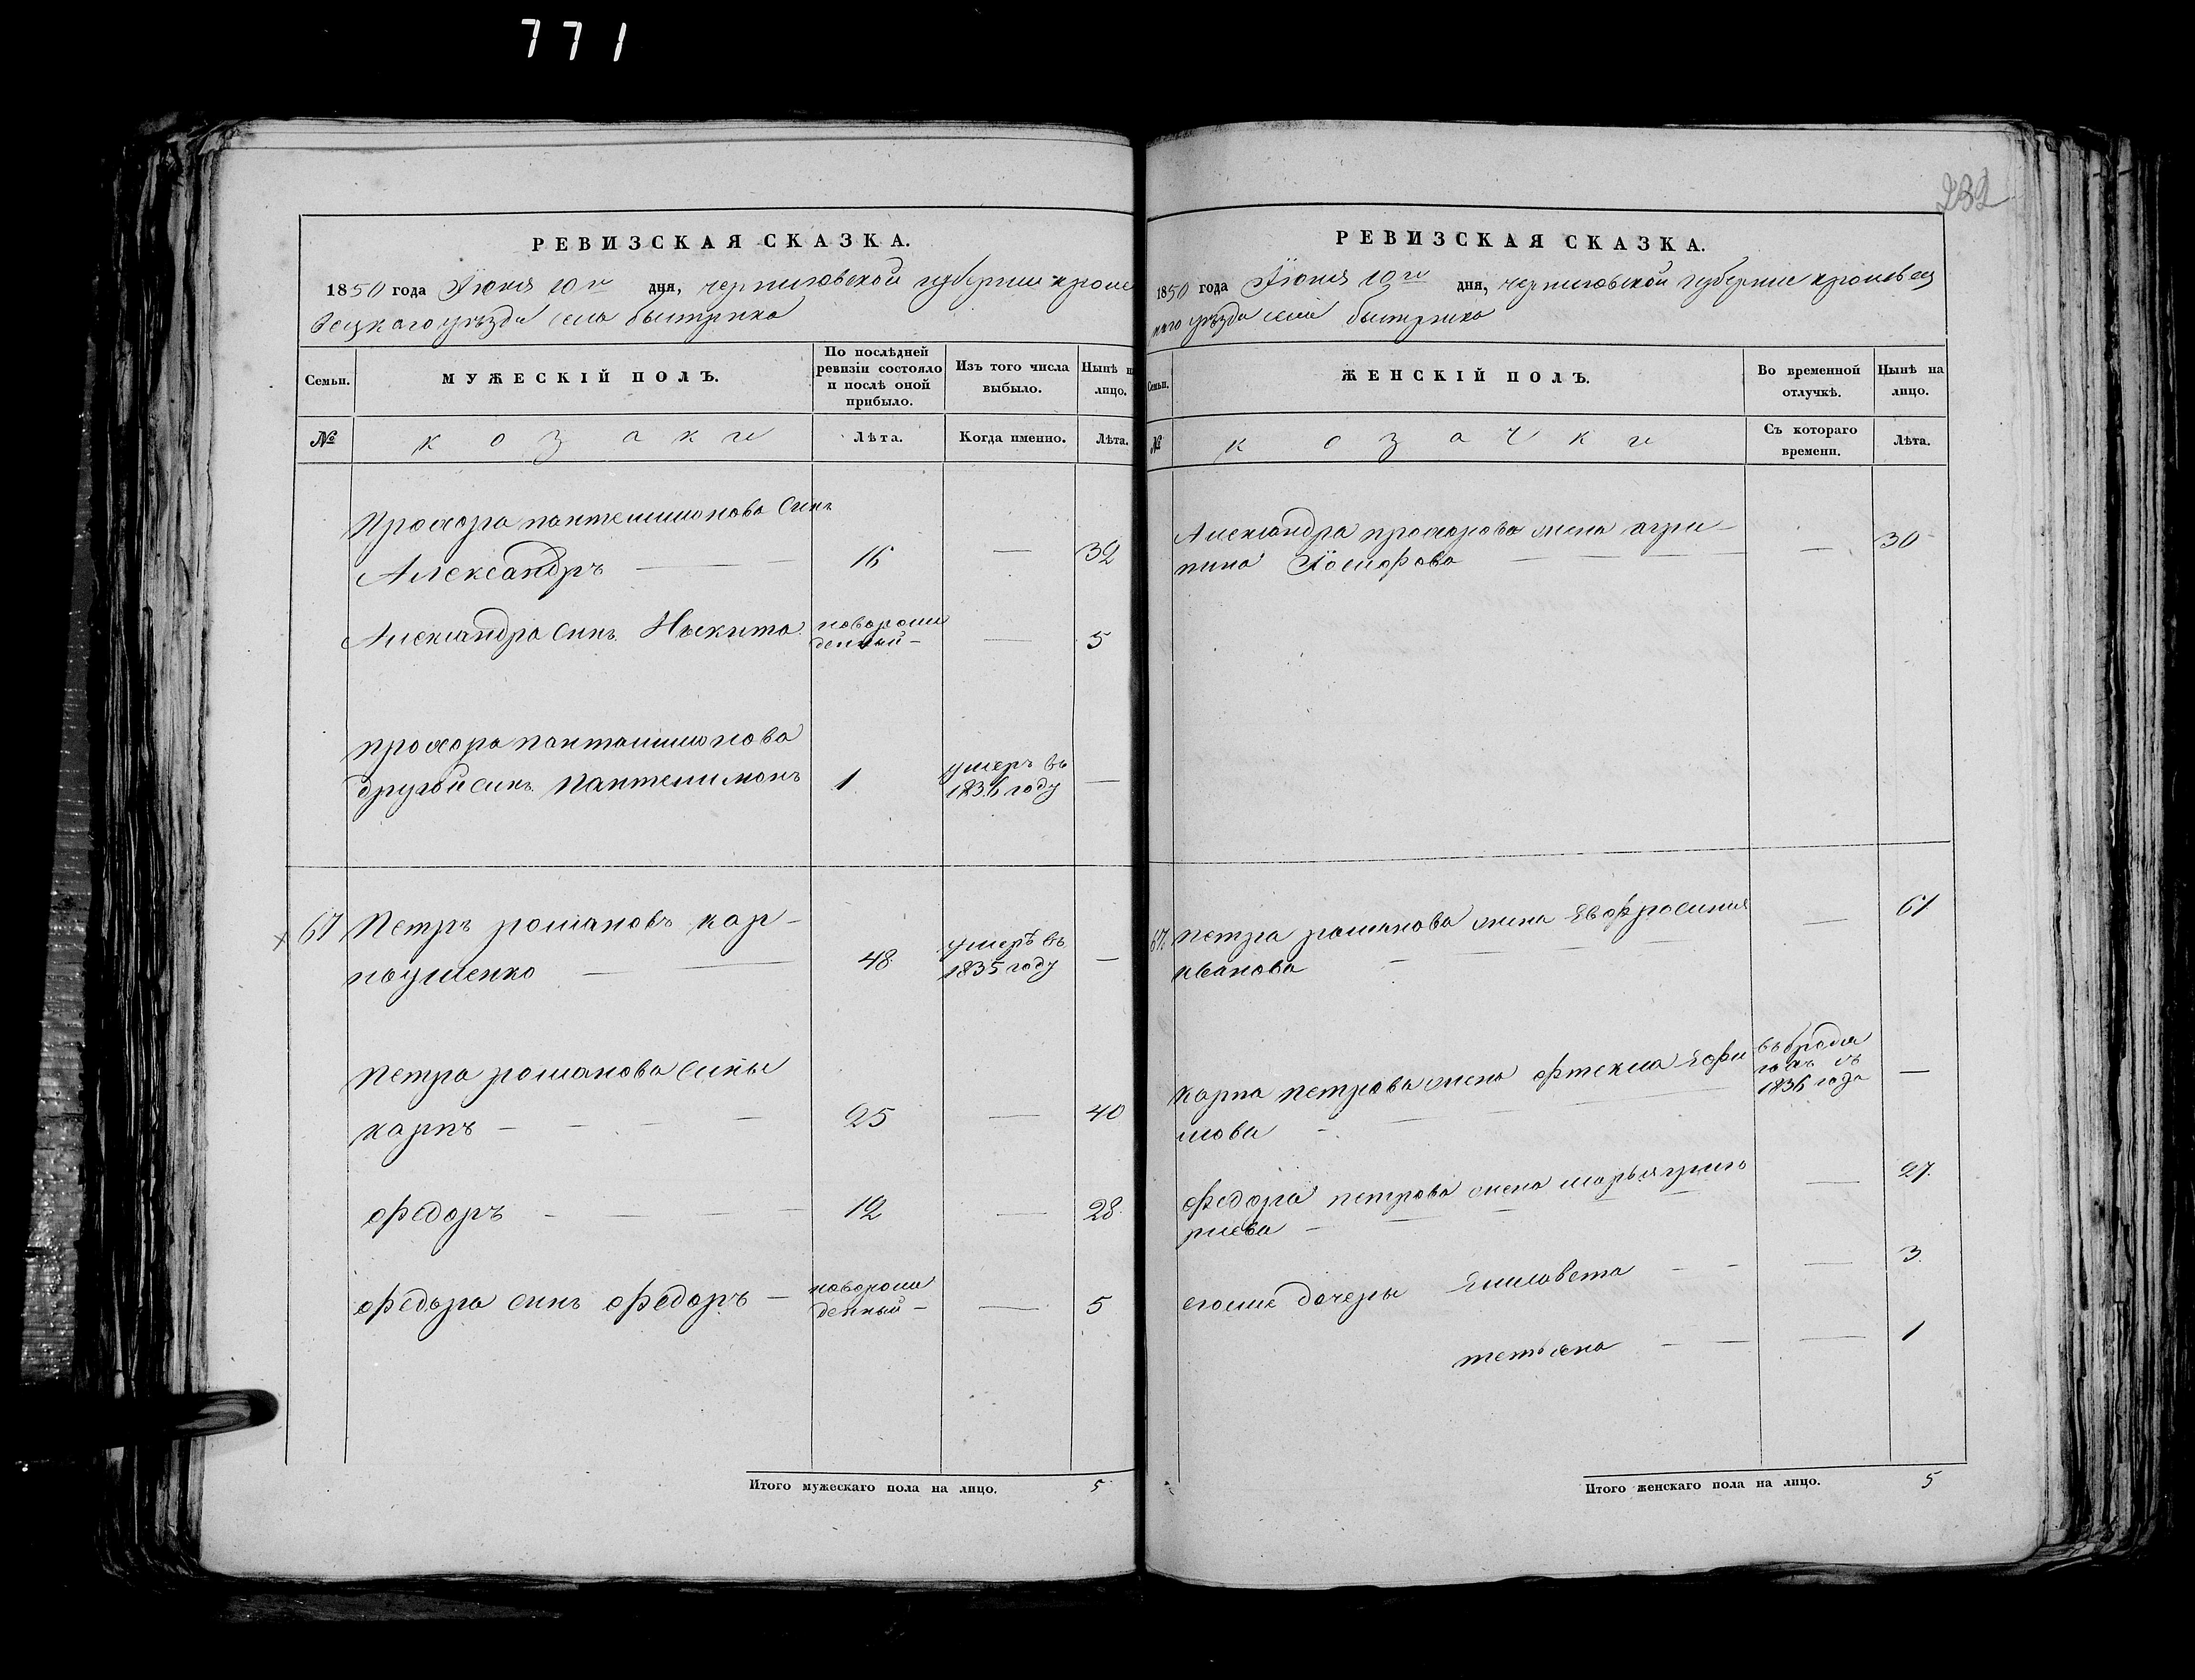 771
232
РЕВИЗСКАЯ СКАЗКА.
1850 года Июня 10го дня, черниговской губернии кроле
вецкаго уезда села быстрика
Семьи. МУЖЕСКІЙ ПОЛЪ. По послѣдней ревизіи состояло и послѣ оной прибыло. Изъ того числа выбыло. Нынѣ н лицо.
№ козаки Лѣта. Когда именно. Лѣта.
Прохора пантелимонова Синъ
Александръ — 16 — 32
Александра Синъ Никита новорож
денный — — 5
прохора пантилимонова
другий синъ пантелимонъ 1 умеръ въ
1836 году —
67 Петръ романовъ кар-
поушенко — 48 умеръ въ
1835 году —
Петра романова Сины
карпъ — 25 — 40
федоръ — 12 — 28.
федора синъ федоръ — новорож
денный — — 5
Итого мужескаго пола на лицо. 5
РЕВИЗСКАЯ СКАЗКА.
1850 года Июня 10го дня, черниговской губернии кролевец
каго уезда села быстрика
Семьи. ЖЕНСКІЙ ПОЛЪ. Во временной отлучкѣ. Нынѣ на лицо.
№ козачки Съ котораго времени. Лѣта.
Александра прохорова жена агри-
пина Иосифова — — 30
67. петра романова жена Евфросиния
иванова — — 61
карпа петрова жена фтекла Ефи
мова — въ бродя
гахъ съ
1836 года —
федора петрова жена марья григо
риева — — 27.
егоже дочеры Елисавета — — 3.
тетьяна — — 1
Итого женскаго пола на лицо. 5